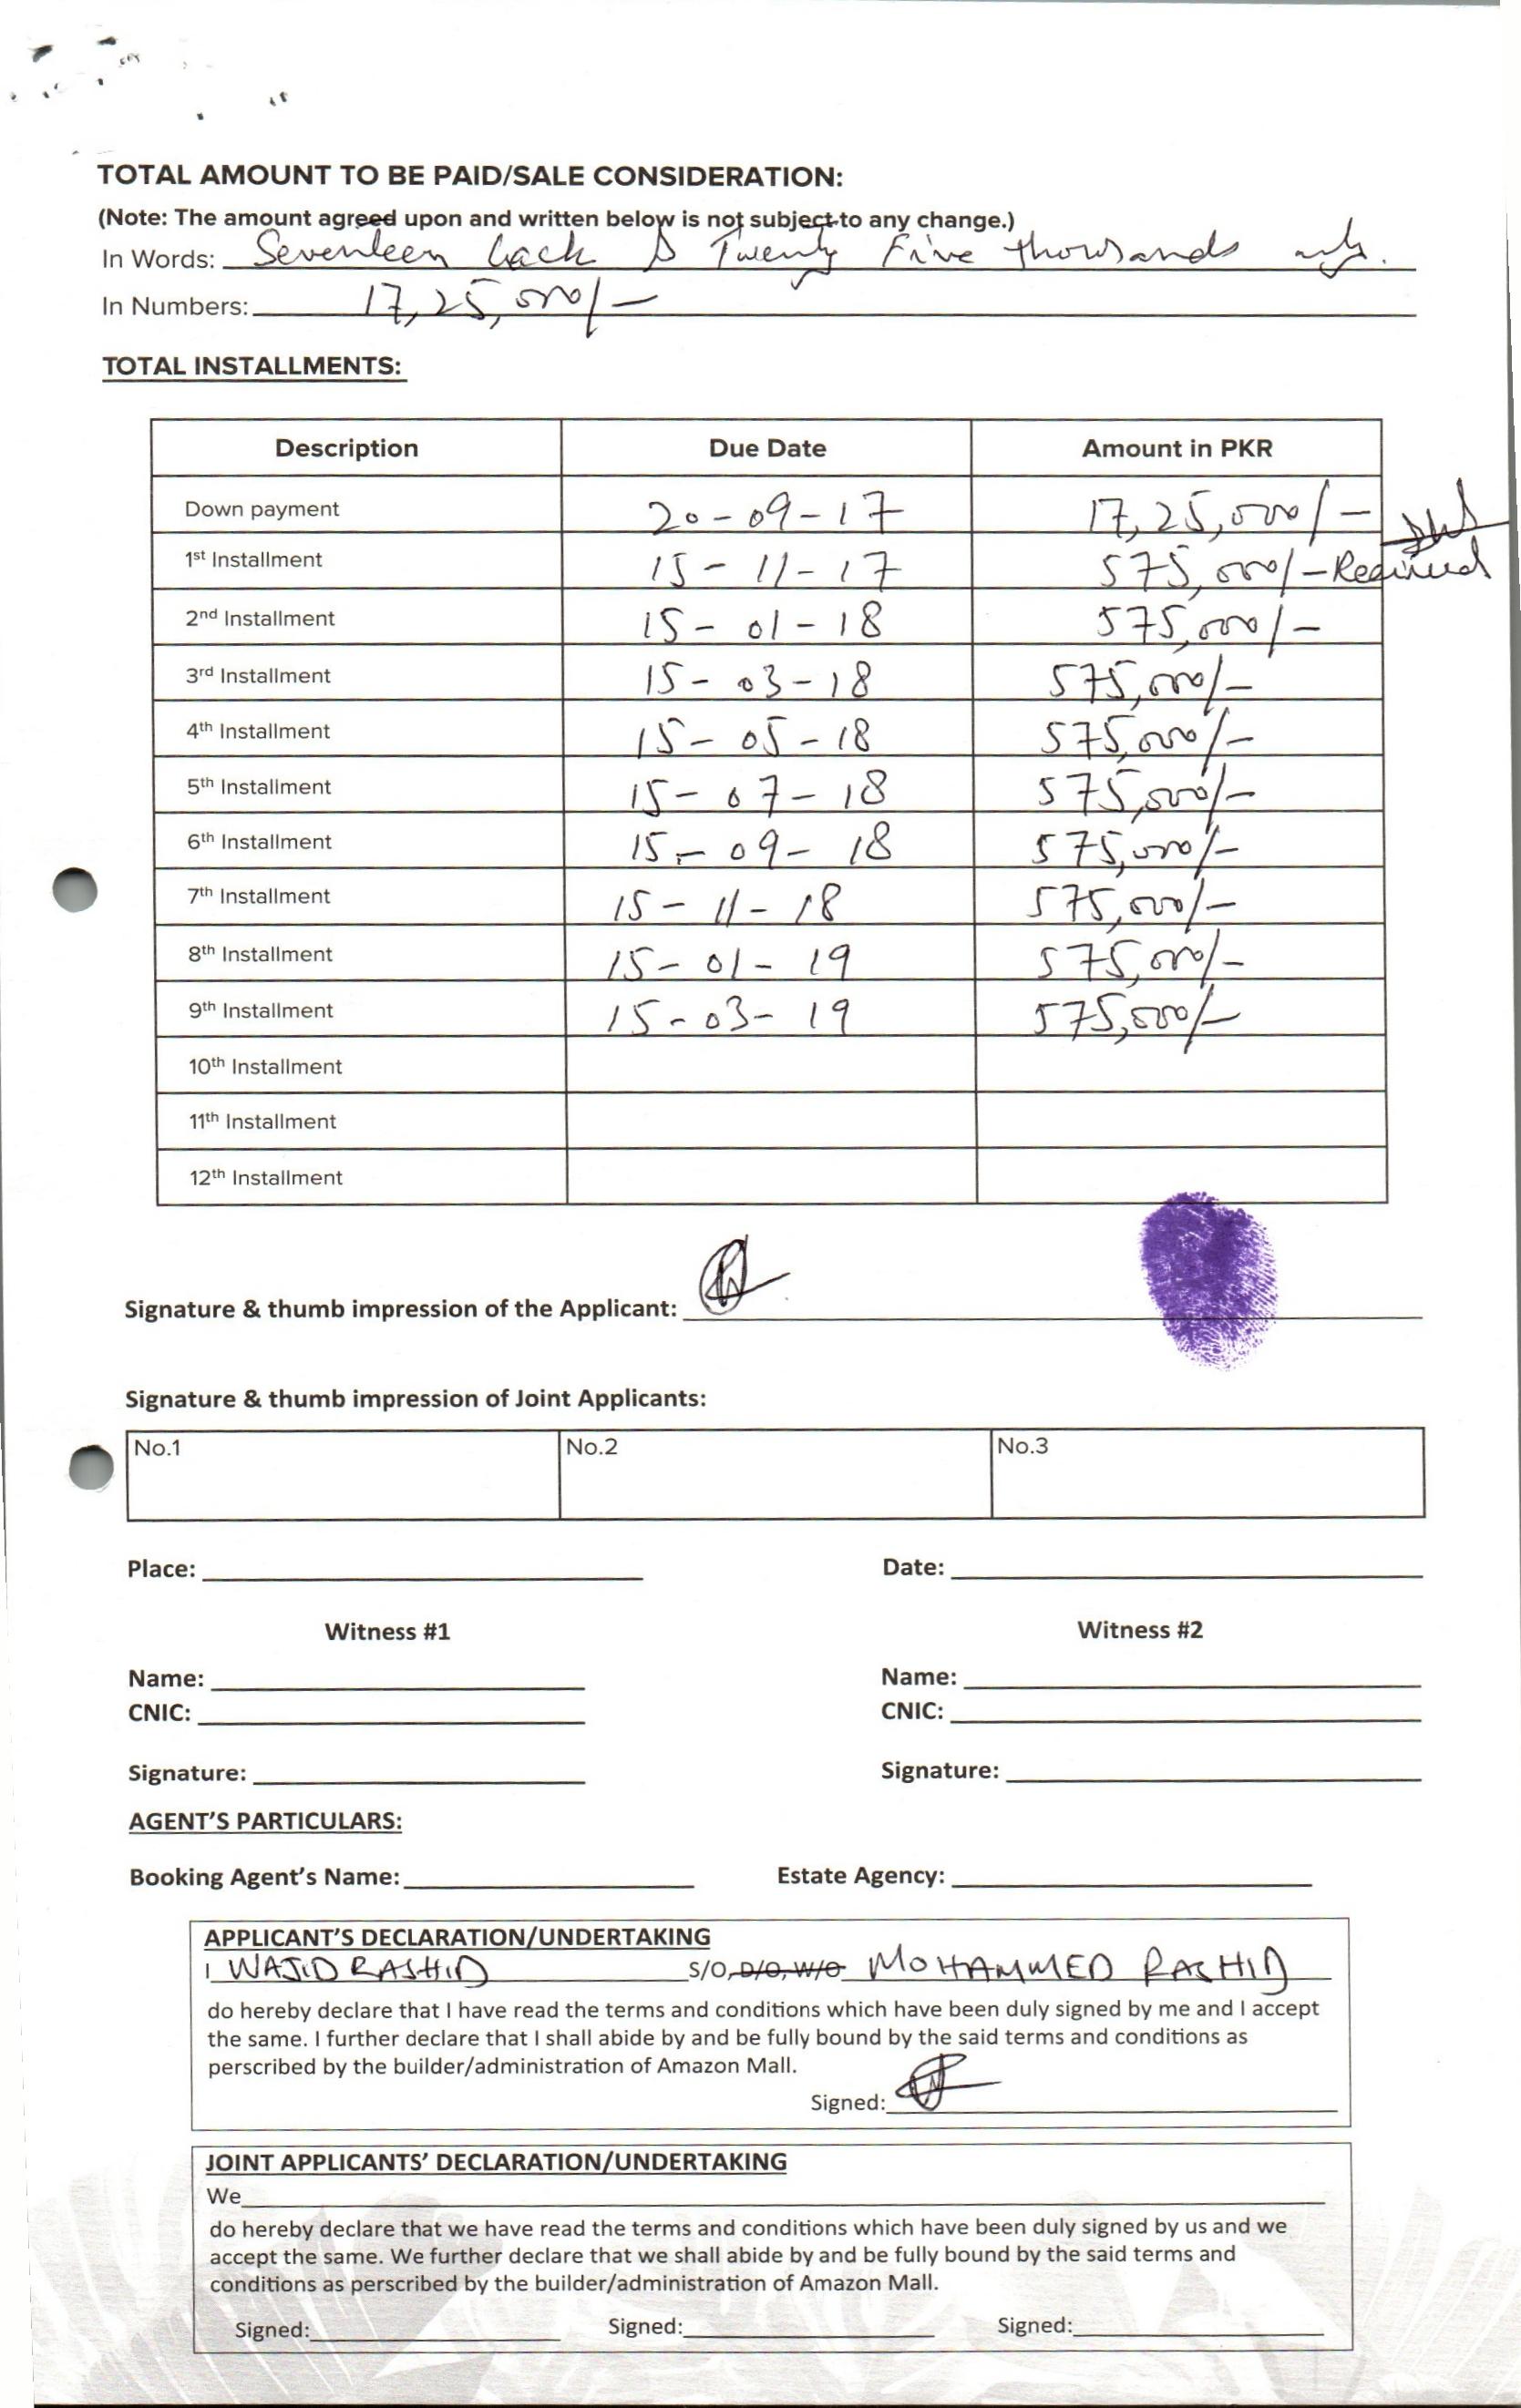 TOTAL AMOUNT TO BE PAID/SALE CONSIDERATION:
(Note: The amount agreed upon and written below is not subject to any change.)
In Words: Seventeen Lack & Twenty Five thousands only.
In Numbers: 17,25,000/-
TOTAL INSTALLMENTS:
Description Due Date Amount in PKR
Down payment 20-09-17 17,25,000/-
1st Installment 15-11-17 575,000/- Received
2nd Installment 15-01-18 575,000/-
3rd Installment 15-03-18 575,000/-
4th Installment 15-05-18 575,000/-
5th Installment 15-07-18 575,000/-
6th Installment 15-09-18 575,000/-
7th Installment 15-11-18 575,000/-
8th Installment 15-01-19 575,000/-
9th Installment 15-03-19 575,000/-
10th Installment
11th Installment
12th Installment
Signature & thumb impression of the Applicant:
Signature & thumb impression of Joint Applicants:
No.1 No.2 No.3
Place: Date:
Witness #1 Witness #2
Name: Name:
CNIC: CNIC:
Signature: Signature:
AGENT'S PARTICULARS:
Booking Agent's Name: Estate Agency:
APPLICANT'S DECLARATION/UNDERTAKING
I WAJID RASHID S/O, D/O, W/O MOHAMMED RASHID
do hereby declare that I have read the terms and conditions which have been duly signed by me and I accept
the same. I further declare that I shall abide by and be fully bound by the said terms and conditions as
perscribed by the builder/administration of Amazon Mall.
Signed:
JOINT APPLICANTS' DECLARATION/UNDERTAKING
We
do hereby declare that we have read the terms and conditions which have been duly signed by us and we
accept the same. We further declare that we shall abide by and be fully bound by the said terms and
conditions as perscribed by the builder/administration of Amazon Mall.
Signed: Signed: Signed: